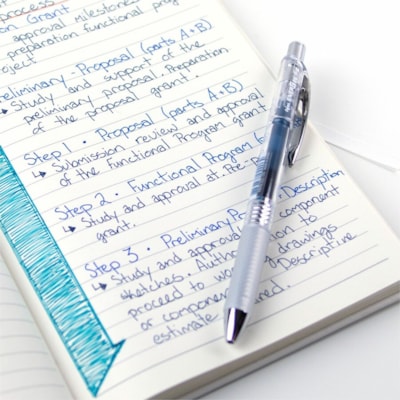 process
on Grant
approval milestones
preparation functional prog
oject
eliminary - Proposal (parts A+B)
↳ Study and support of the
preliminary proposal. Preparation
of the proposal grant.
Step 1 • Proposal (parts A+B)
↳ Submission review and approval
of the Functional Program grant.
Step 2 • Functional Program
↳ Study and approval at Pre-
grant.
Step 3 • Preliminary Description
↳ Study and approval component
sketches. to
proceed to drawings
or Descriptive
estimate